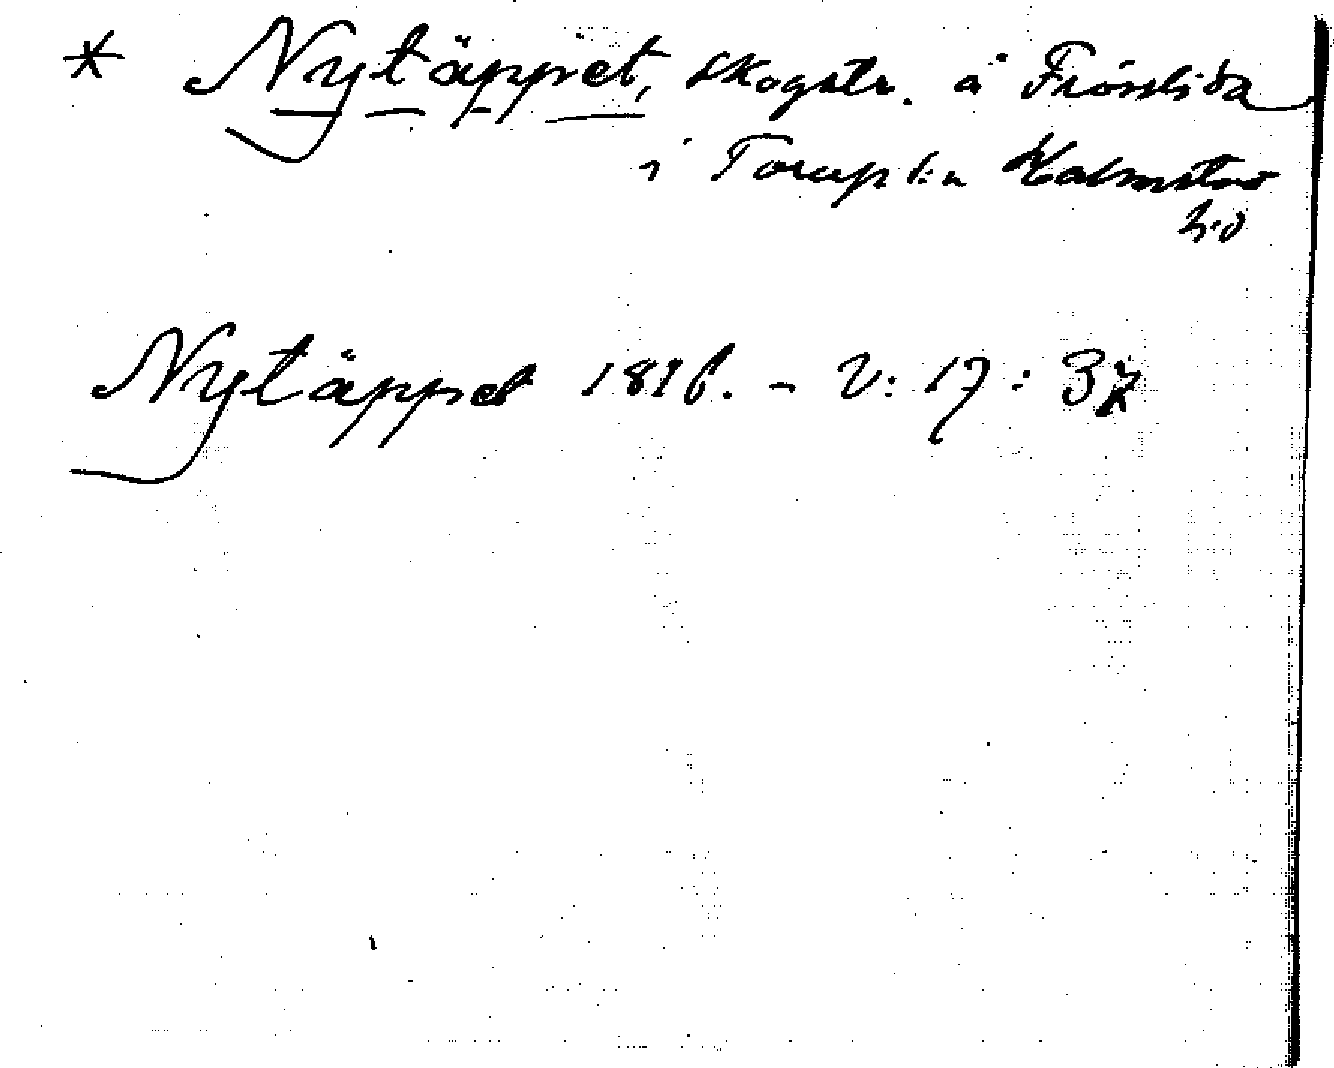 * Nytäppet, skogstr. å Fröslida
i Torups sn Halmstads
h:d
Nytäppet 1816. - V: 17: 37